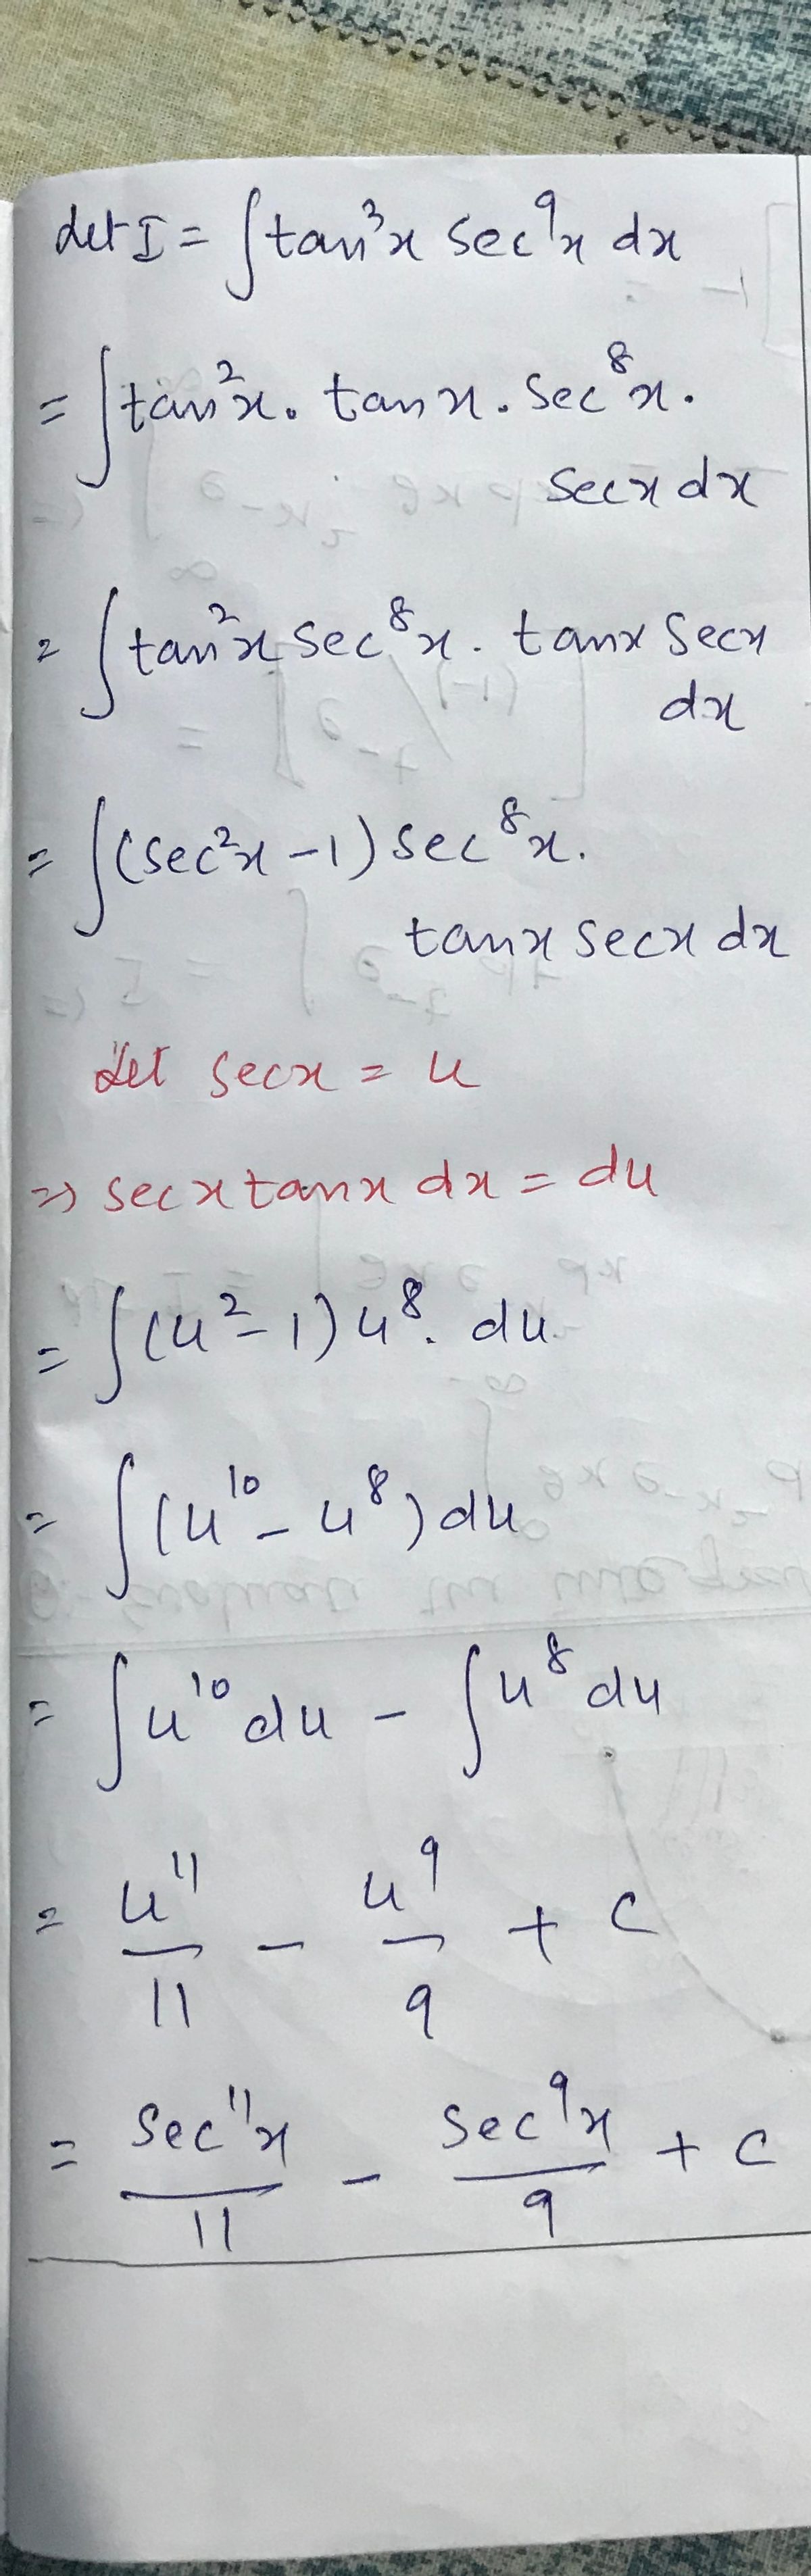 Let I = ∫tan³x sec⁹x dx
= ∫tan²x. tanx. sec⁸x.
secx dx
= ∫tan²x sec⁸x. tanx secx
dx
= ∫(sec²x - 1) sec⁸x.
tanx secx dx
Let secx = u
=> secxtanx dx = du
= ∫(u² - 1)u⁸. du
= ∫(u¹⁰ - u⁸)du
= ∫u¹⁰du - ∫u⁸du
= u¹¹/11 - u⁹/9 + c
= sec¹¹x/11 - sec⁹x/9 + c